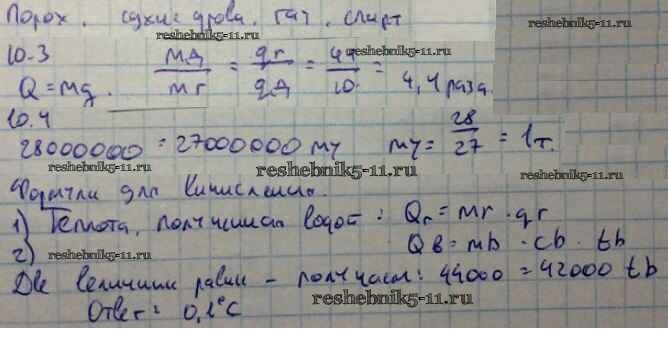 Порох. сухие дрова. газ. спирт
reshebnik5-11.ru
reshebnik5-11.ru
10.3
Q = mq. mд/mг = qг/qд = 44/10 = 4,4 раза.
reshebnik5-11.ru
10.4
28000000 = 27000000 mу mу = 28/27 = 1т.
reshebnik5-11.ru
reshebnik5-11.ru
Формулы для
reshebnik5-11.ru
1) Теплота, полученная водой: Qг = mг · qг
2) Qв = mв · cв · tв
reshebnik5-11.ru
Две величины равны – получаем: 44000 = 42000 tв
reshebnik5-11.ru
Ответ: 0,1°C